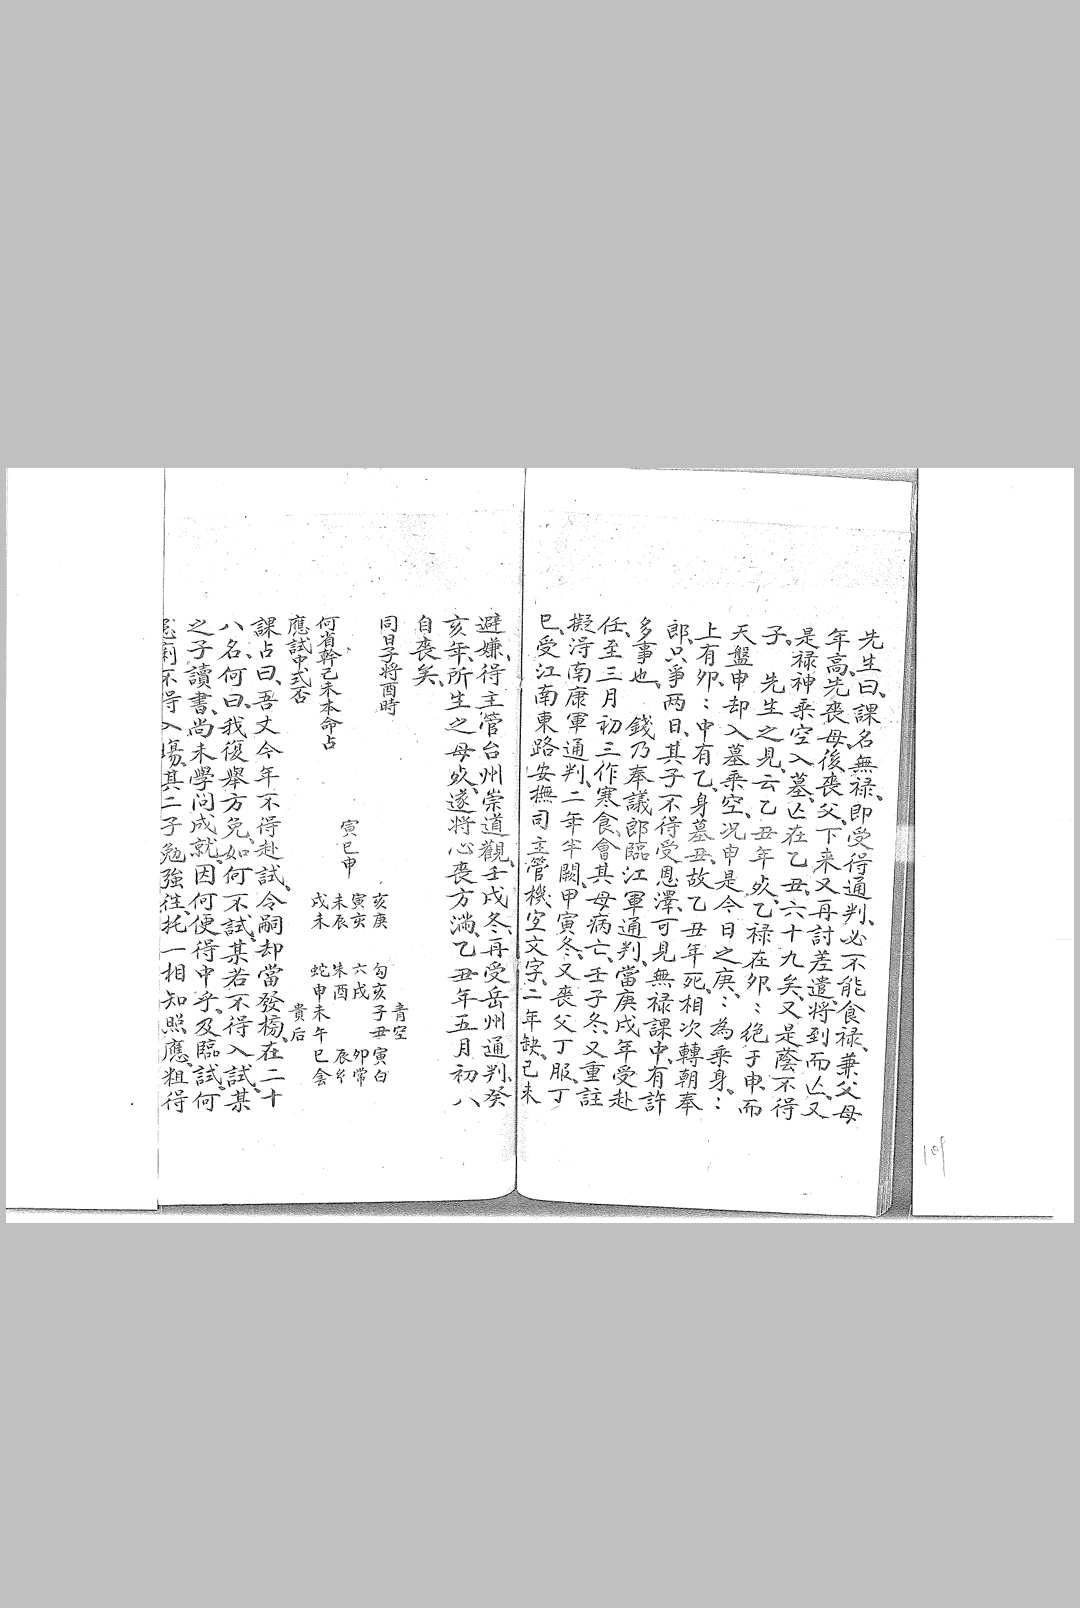 先生曰、課名無祿、即受得通判、必不能食祿、兼父母
年高、先喪母後喪父、下來又再討差遣、將到而亡、又
是祿神乘空入墓、亡在乙丑、六十九矣、又是蔭不得
子、先生之見、云乙丑年歿、乙祿在卯〻絕于申、而
天盤申却入墓乘空、況申是今日之庚〻為乘身〻
上有卯〻中有乙、身墓丑、故乙丑年死、相次轉朝奉
郎、只爭两日、其子不得受恩澤、可見無祿課中、有許
多事也、　錢乃奉議郎臨江軍通判、當庚戌年受赴
任、至三月初三作寒食、會其母病亡、壬子冬、又重註
擬淂南康軍通判、二年半闕、甲寅冬、又喪父丁服、丁
巳、受江南東路安撫司主管機宜文字、二年缺、己未
避嫌、得主管台州崇道觀、壬戌冬、再受岳州通判、癸
亥年、所生之母歿、遂將心喪方滿、乙丑年五月初八
自喪矣、
同日子将酉時
何省幹己未本命占
應試中式否
寅巳申
亥庚
寅亥
未辰
戌未
青空
勾亥子丑寅白
六戌　卯常
朱酉　辰玄
蛇申未午巳陰
貴后
課占曰、吾丈今年不得赴試、令嗣却當發榜、在二十
八名、何曰、我復舉方免、如何不試、某若不得入試、某
之子讀書、尚未學问成就、因何便得中乎、及臨試、何
不得入場、其二子勉強往、托一相知照應、粗得